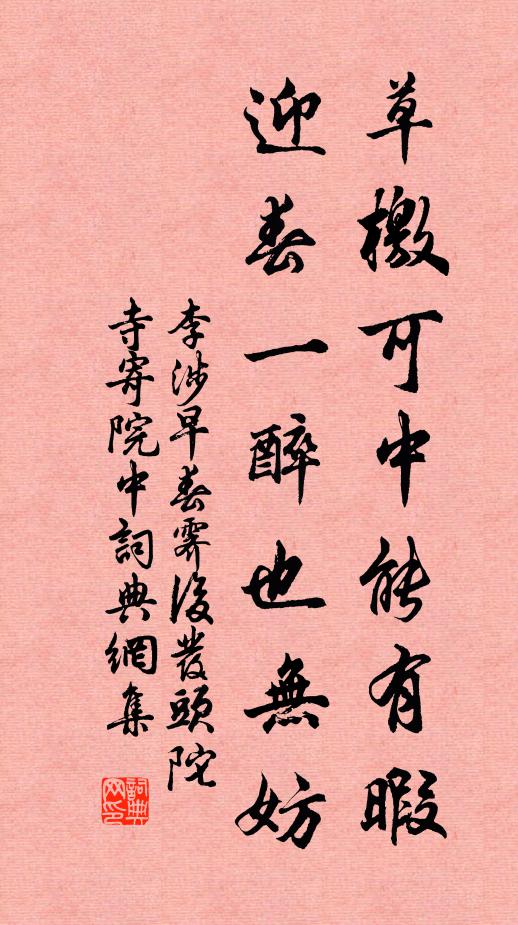 草檄可中能有暇
迎春一醉也無妨
李涉早春霽後發頭陀
寺寄院中詞典網集
詞典
网印